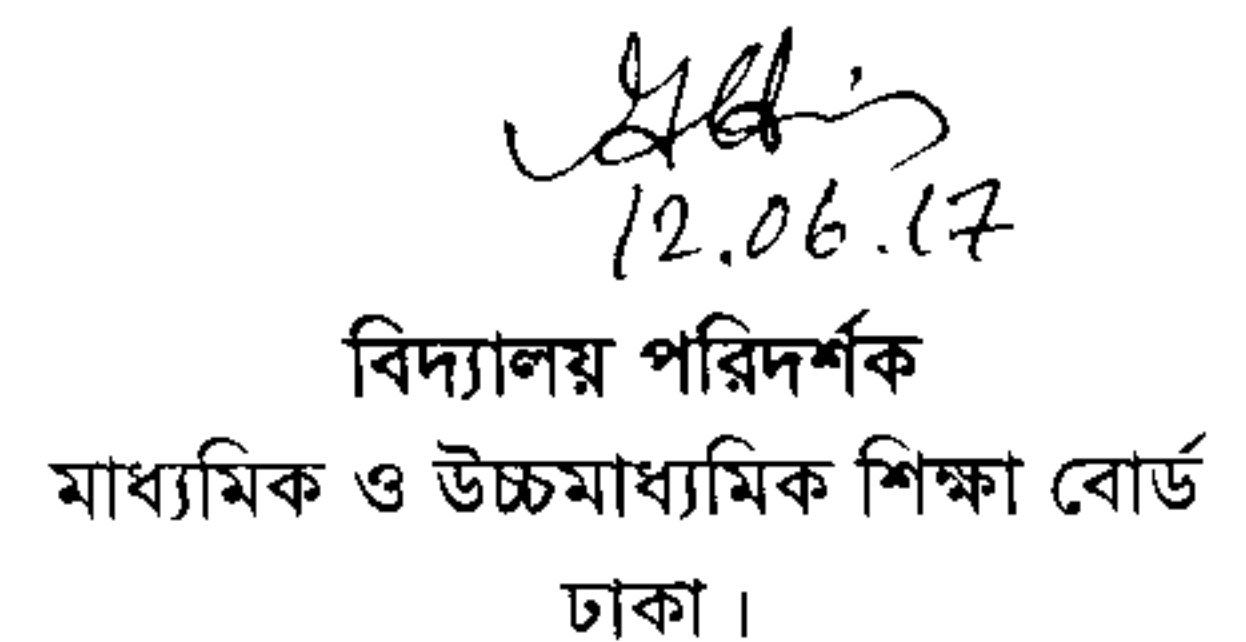 12.06.17
বিদ্যালয় পরিদর্শক
মাধ্যমিক ও উচ্চমাধ্যমিক শিক্ষা বোর্ড
ঢাকা।